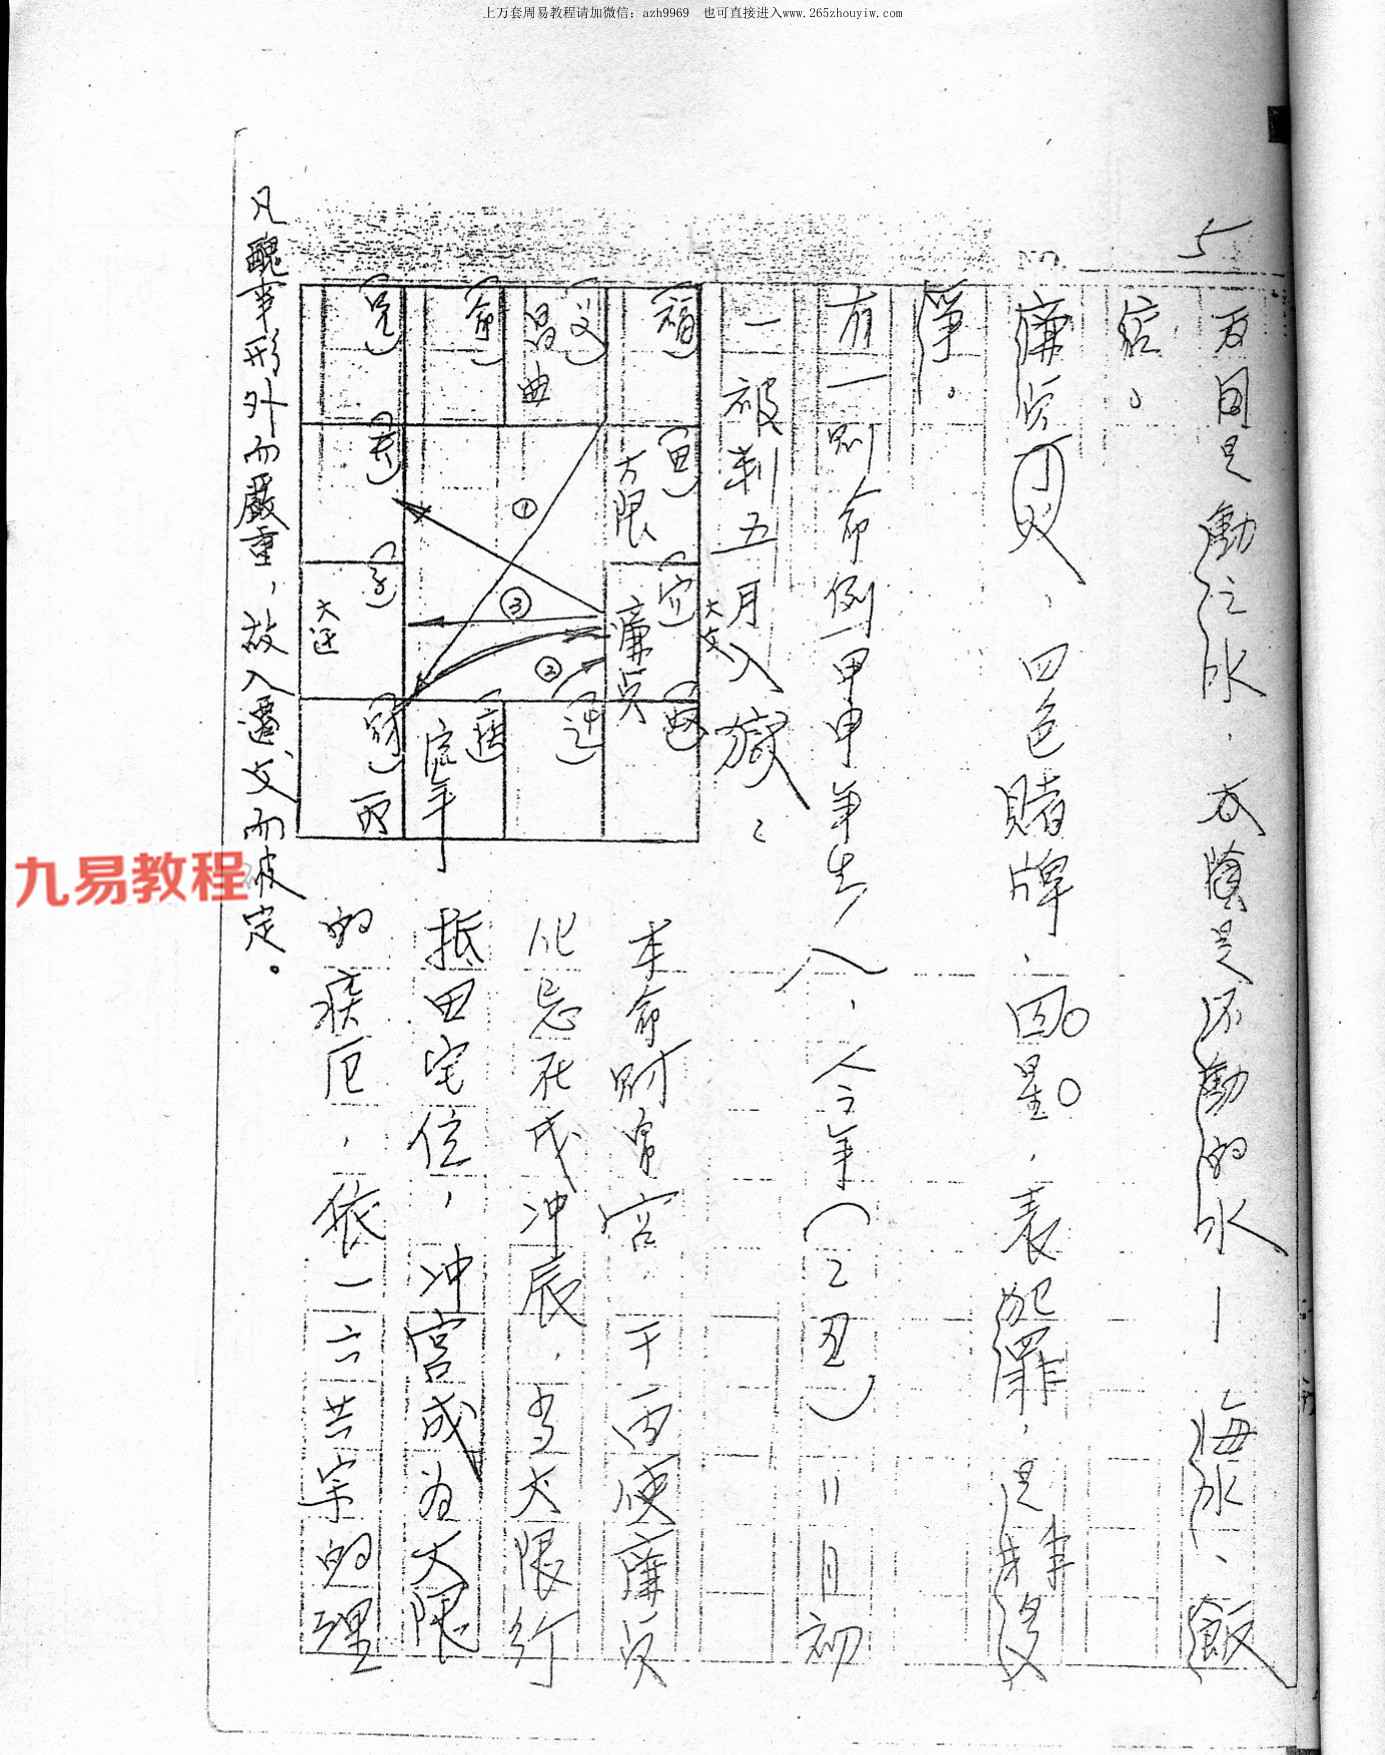 上万套周易教程请加微信：azh9969 也可直接进入www.265zhouyiw.com
5
天同是動之水，太陰是不動的水—海水、飯
店。
廉貞四火、四色賭牌、囚星，表犯罪，是非多
爭。
有一則命例—甲申年生人，今年（乙丑）11月初
一被判五月入獄：
福 文昌曲 命 兄
田 大限 夫
官 廉貞 子 大迁
奴 迁 疾 流年 財 丙
① ② ③
本命財帛宮干丙使廉貞
化忌在戌冲辰，當大限行
抵田宅位，冲宮成為大限
的疾厄，依一六共宗的理
凡醜事形外而嚴重，故入遷，父而被定。
九易教程